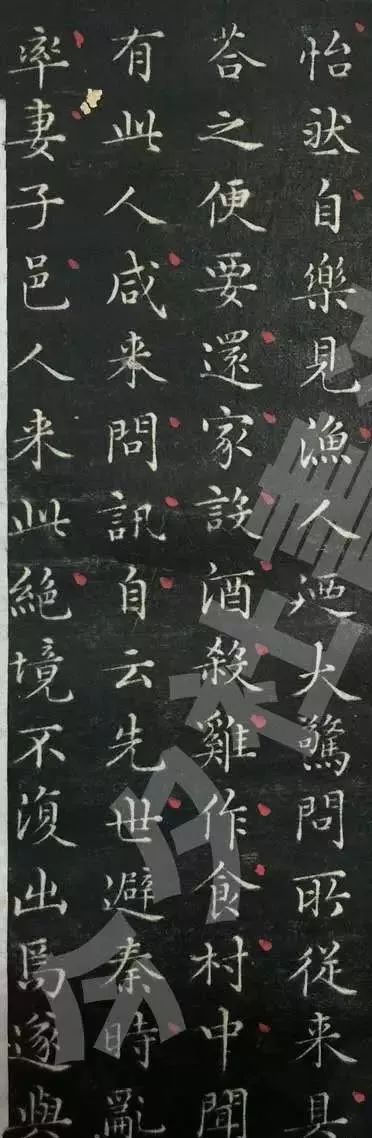 怡然自樂見漁人迺大驚問所從来具
荅之便要還家設酒殺雞作食村中聞
有此人咸来問訊自云先世避秦時亂
率妻子邑人来此絕境不復出焉遂與